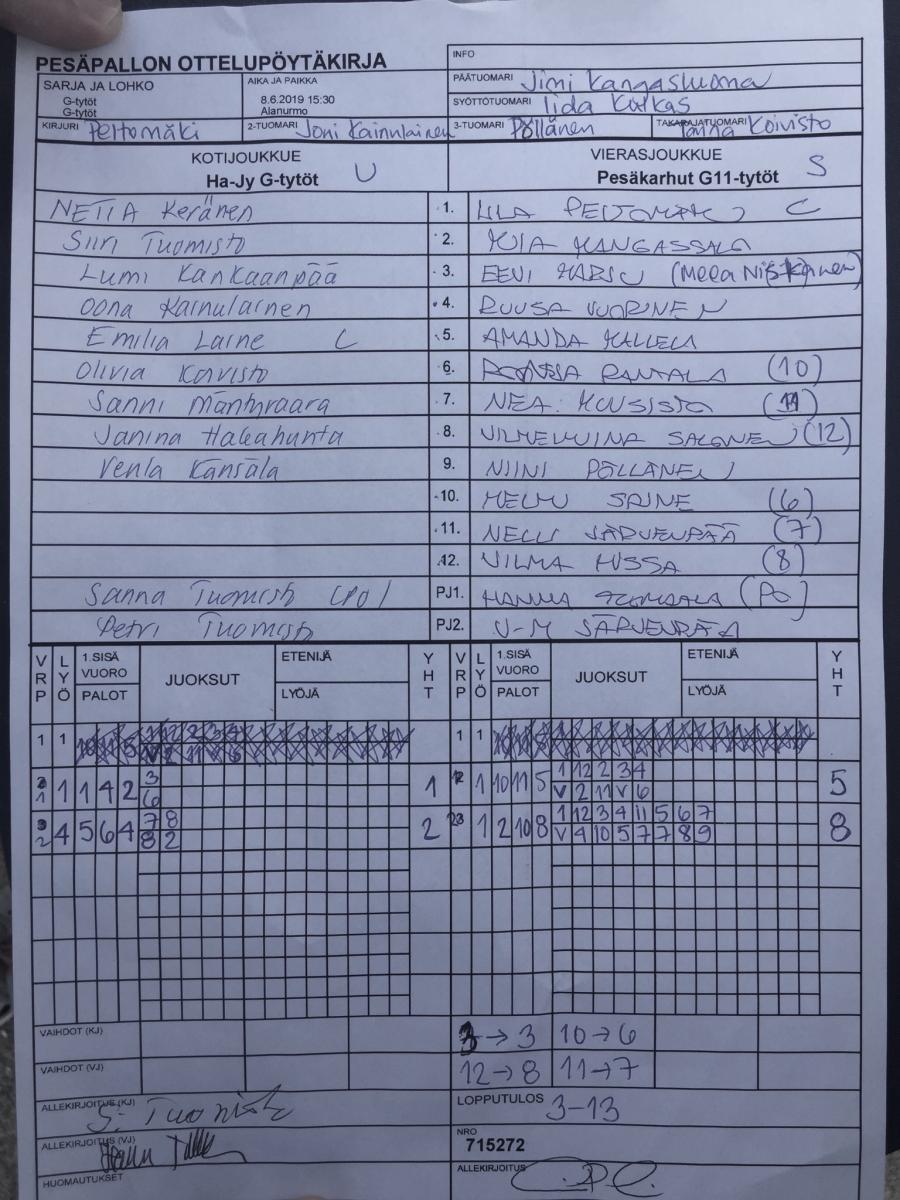 PESÄPALLON OTTELUPÖYTÄKIRJA
INFO
SARJA JA LOHKO
G-tytöt
G-tytöt
AIKA JA PAIKKA
8.6.2019 15:30
Alanurmo
PÄÄTUOMARI Jimi Kangasluoma
SYÖTTÖTUOMARI Iida Kotkas
KIRJURI Peltomäki 2-TUOMARI Joni Kainulainen 3-TUOMARI Pöllänen TAKARAJATUOMARI Koivisto
KOTIJOUKKUE U
Ha-Jy G-tytöt
VIERASJOUKKUE S
Pesäkarhut G11-tytöt
NETTA Keränen 1. PELTOMÄKI C
Siiri Tuomisto 2. KANGASSALO
Lumi Kankaanpää 3. EEVI HARJU (Meea Niskanen)
Oona Kainulainen 4. RUUSA VUORINEN
Emilia Laine C 5. AMANDA
Olivia Koivisto 6. RANTALA (10)
Sanni Mäntyvaara 7. NEA (11)
Janina Hakahunta 8. SALONEN (12)
Venla Känsälä 9. NIINI PÖLLÄNEN
10. HELMI (6)
11. NELLI JÄRVENPÄÄ (7)
12. VILMA HISSA (8)
Sanna Tuomisto (PO) PJ1. HANNA (PO)
Petri Tuomisto PJ2. V-M JÄRVENPÄÄ
VRP LYÖ 1.SISÄ VUORO PALOT JUOKSUT ETENIJÄ LYÖJÄ YHT VRP LYÖ 1.SISÄ VUORO PALOT JUOKSUT ETENIJÄ LYÖJÄ YHT
1 1 1 1
1 1 1 4 2 3 1 1 10 11 5 1 12 2 3 4 5
6 V 2 11 V 6
2 4 5 6 4 7 8 2 2 1 2 10 8 1 12 3 4 11 5 6 7 8
8 2 V 4 10 5 7 7 8 9
VAIHDOT (KJ) 3→3 10→6
VAIHDOT (VJ) 12→8 11→7
ALLEKIRJOITUS (KJ) S. Tuomisto
LOPPUTULOS 3-13
ALLEKIRJOITUS (VJ)
NRO
715272
HUOMAUTUKSET
ALLEKIRJOITUS